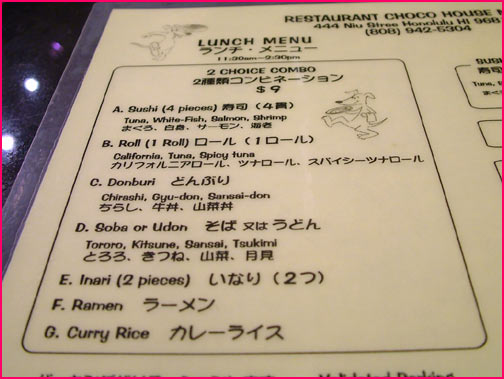 RESTAURANT CHOCO HOUSE
444 Niu Stree Honolulu HI 968
(808) 942-5304
LUNCH MENU
ランチ・メニュー
11:30am-2:30pm
2 CHOICE COMBO
2種類コンビネーション
$ 9
A. Sushi (4 pieces) 寿司 (4貫)
Tuna, White-Fish, Salmon, Shrimp
まぐろ、白身、サーモン、海老
B. Roll (1 Roll) ロール (1ロール)
California, Tuna, Spicy tuna
カリフォルニアロール、ツナロール、スパイシーツナロール
C. Donburi どんぶり
Chirashi, Gyu-don, Sansai-don
ちらし、牛丼、山菜丼
D. Soba or Udon そば 又は うどん
Tororo, Kitsune, Sansai, Tsukimi
とろろ、きつね、山菜、月見
E. Inari (2 pieces) いなり (2つ)
F. Ramen ラーメン
G. Curry Rice カレーライス
寿司